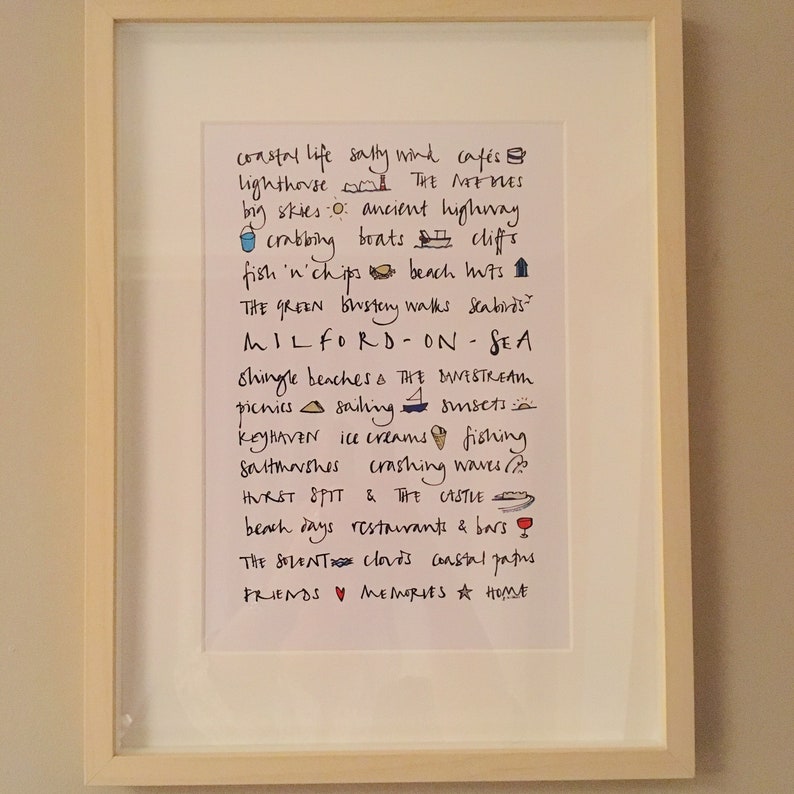 coastal life salty wind cafés
lighthouse THE NEEDLES
big skies ancient highway
crabbing boats cliffs
fish 'n' chips beach huts
THE GREEN blustery walks seabirds
MILFORD-ON-SEA
shingle beaches THE DANESTREAM
picnics sailing sunsets
KEYHAVEN ice creams fishing
saltmarshes crashing waves
HURST SPIT & THE CASTLE
beach days restaurants & bars
THE SOLENT clouds coastal paths
FRIENDS MEMORIES HOME